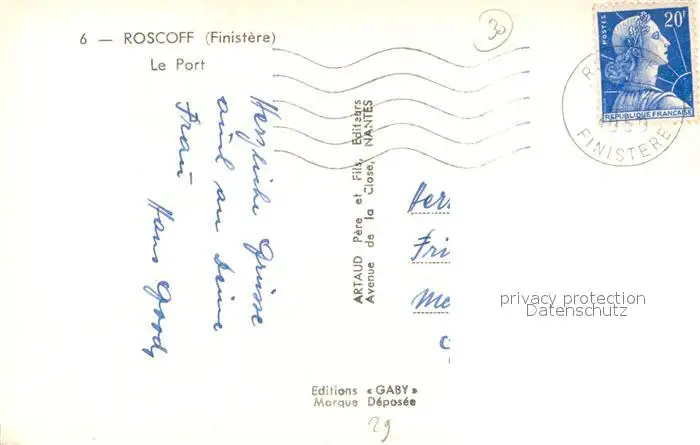 6 — ROSCOFF (Finistère)
Le Port
30
POSTES
20F
REPUBLIQUE FRANÇAISE
FINISTERE
Herzliche Grüsse
auch an Deine
Frau
Hans
ARTAUD Père et Fils, Editeurs
Avenue de la Close, NANTES
Her
Fri
privacy protection
Datenschutz
Editions « GABY »
Marque Déposée
29